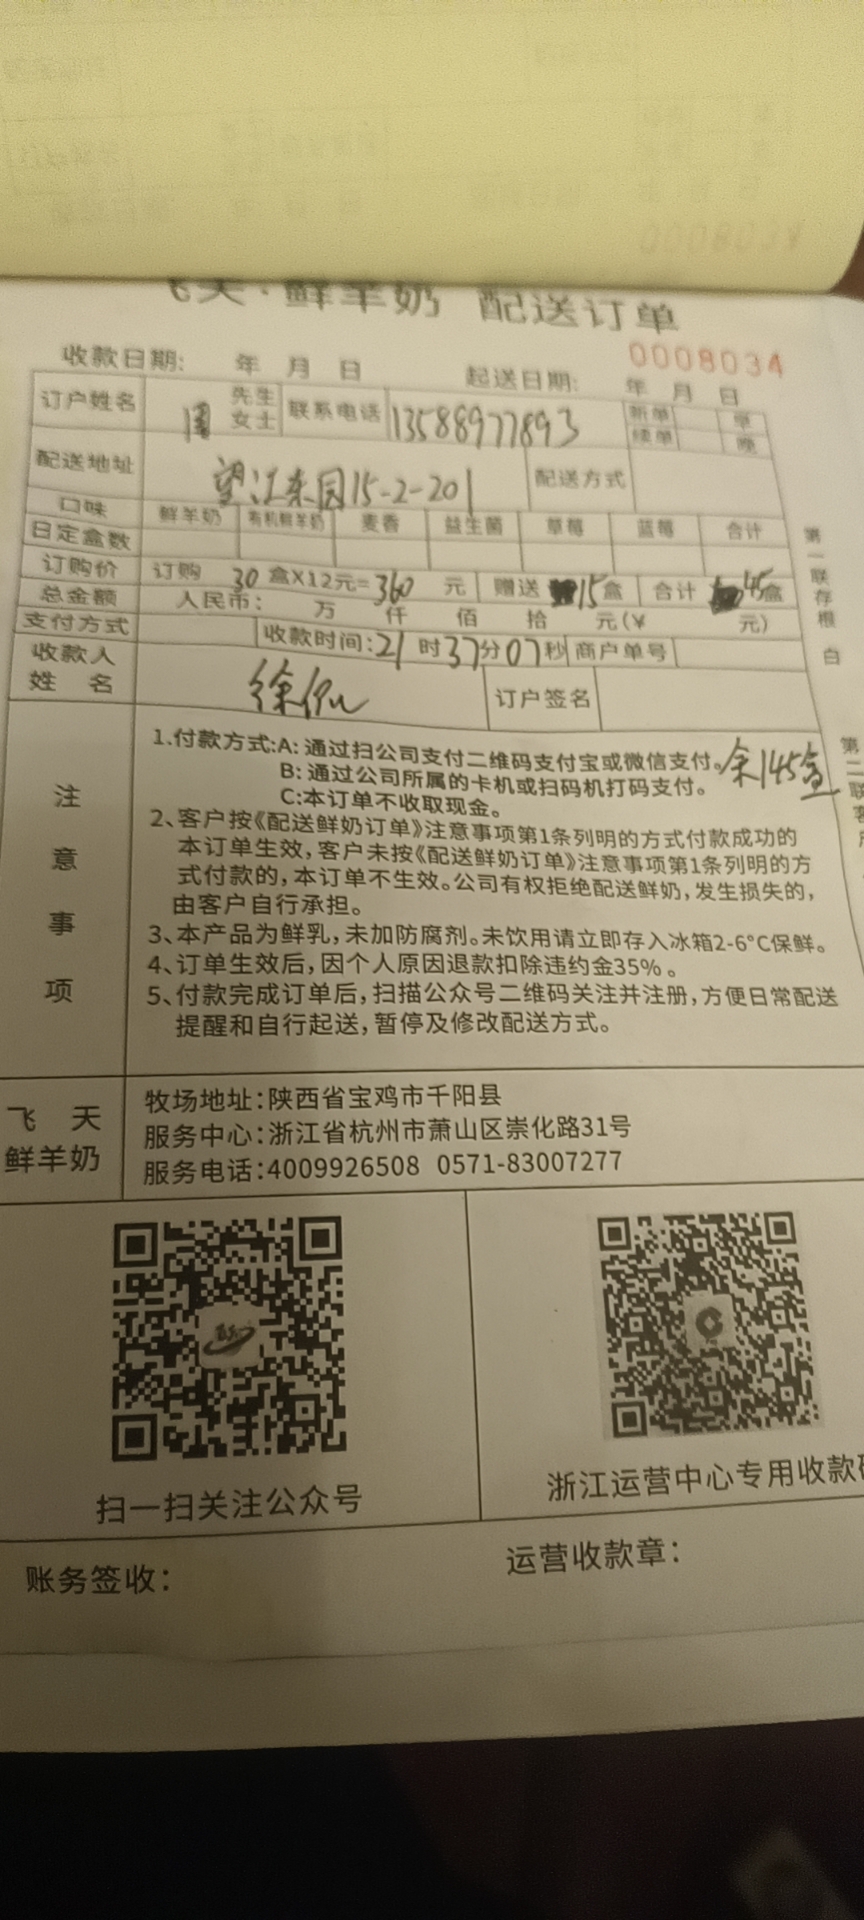 飞天·鲜羊奶 配送订单
0008034
收款日期: 年 月 日 起送日期: 年 月 日
订户姓名 周 先生 女士 联系电话 13588977893 新单 续单 早 晚
配送地址 望江东园15-2-201 配送方式
口味 鲜羊奶 有机鲜羊奶 麦香 益生菌 草莓 蓝莓 合计
日定盒数
订购价 订购 30 盒X12元=360 元 赠送 15盒 合计 45盒
总金额 人民币: 万 仟 佰 拾 元(¥ 元)
支付方式 收款时间:21时37分07秒 商户单号
收款人姓名 徐 订户签名
第一联存根 白
第二联客
余145盒
注意事项
1.付款方式:A: 通过扫公司支付二维码支付宝或微信支付。
B: 通过公司所属的卡机或扫码机打码支付。
C:本订单不收取现金。
2、客户按《配送鲜奶订单》注意事项第1条列明的方式付款成功的
本订单生效,客户未按《配送鲜奶订单》注意事项第1条列明的方
式付款的,本订单不生效。公司有权拒绝配送鲜奶,发生损失的,
由客户自行承担。
3、本产品为鲜乳,未加防腐剂。未饮用请立即存入冰箱2-6°C保鲜。
4、订单生效后,因个人原因退款扣除违约金35%。
5、付款完成订单后,扫描公众号二维码关注并注册,方便日常配送
提醒和自行起送,暂停及修改配送方式。
飞天
鲜羊奶
牧场地址:陕西省宝鸡市千阳县
服务中心:浙江省杭州市萧山区崇化路31号
服务电话:4009926508 0571-83007277
扫一扫关注公众号
浙江运营中心专用收款码
账务签收:
运营收款章: